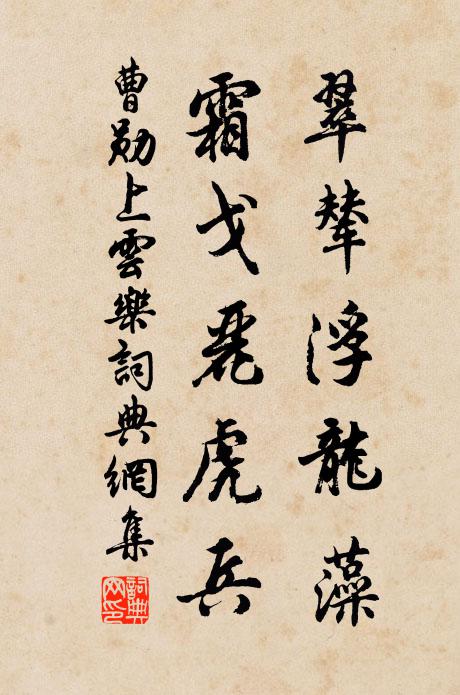 翠輦浮龍藻
霜戈麗虎兵
曹勛上雲樂詞典網集
詞典網印